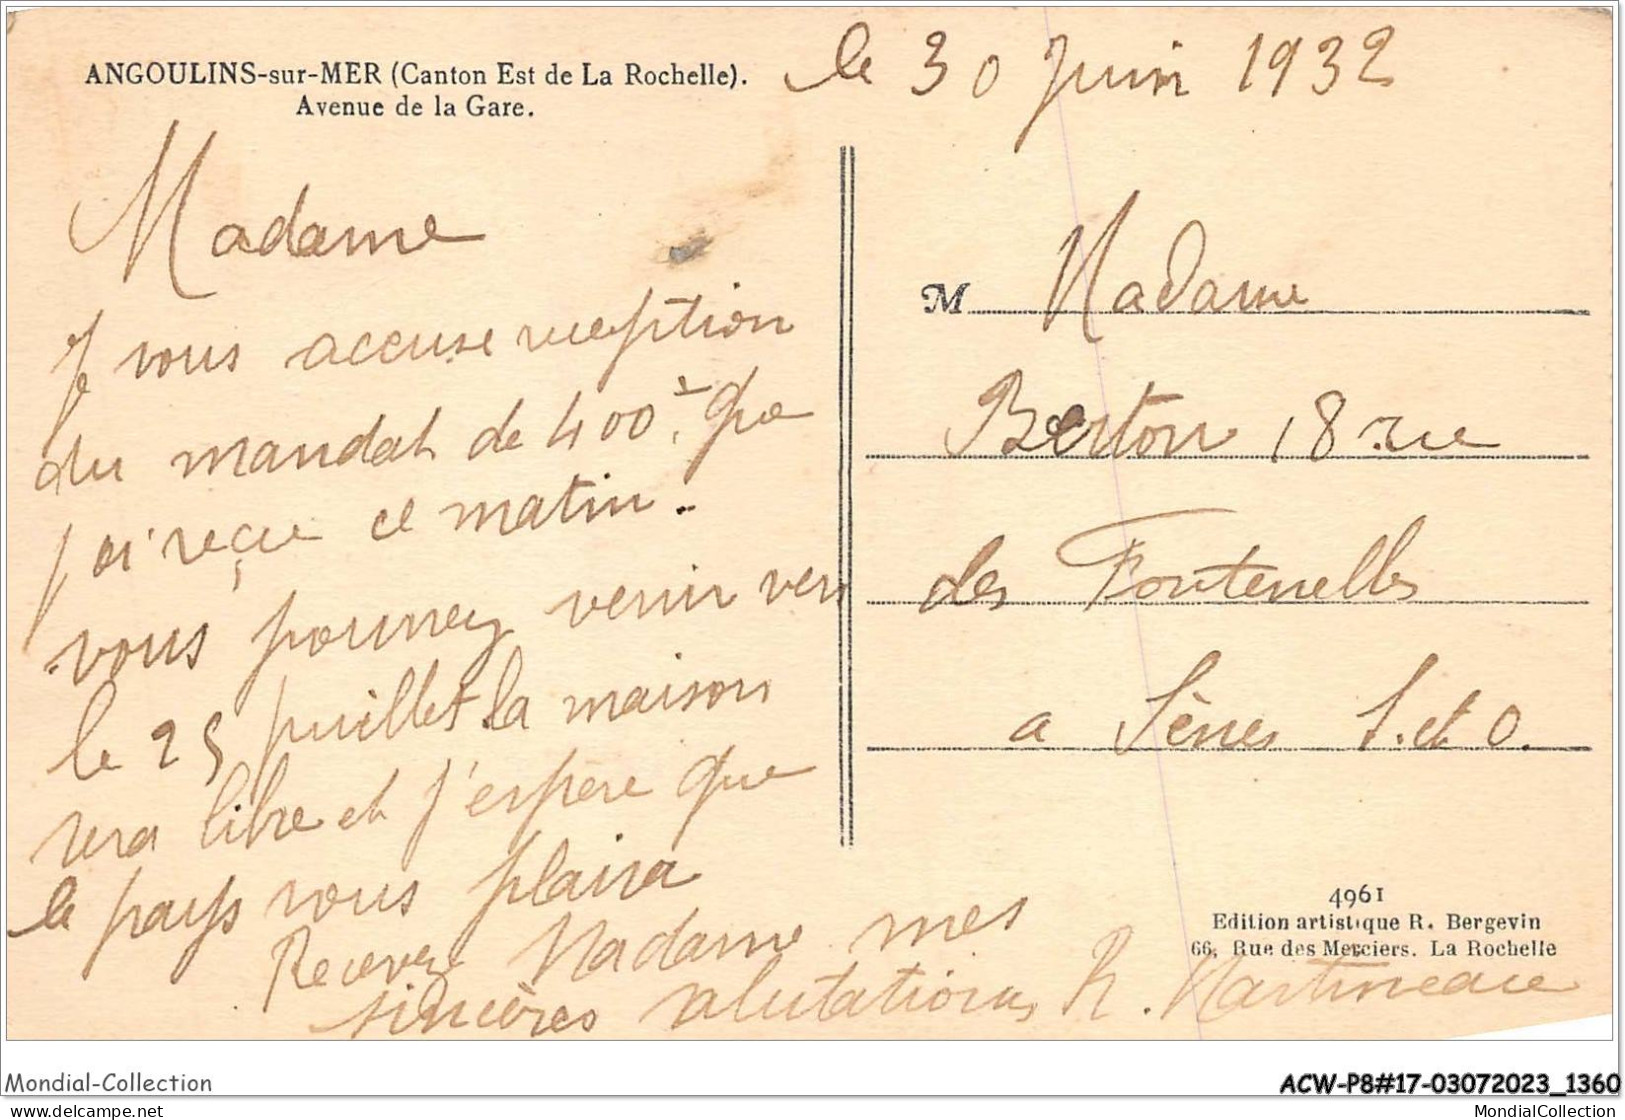 ANGOULINS-sur-MER (Canton Est de La Rochelle).
Avenue de la Gare.
le 30 Juin 1932
Madame
Je vous accuse reception
du mandat de 400 f. que
j'ai reçue ce matin.
vous pourrez venir vers
le 25 juillet la maison
sera libre et j'espère que
le pays vous plaira
Recevez Madame mes
sincères salutations R. Martineau
M Madame
Berton 18 rue
des Fontenelles
a Sèvres S. et O.
4961
Edition artistique R. Bergevin
66, Rue des Merciers. La Rochelle
Mondial-Collection
ACW-P8#17-03072023_1360
www.delcampe.net
MondialCollection